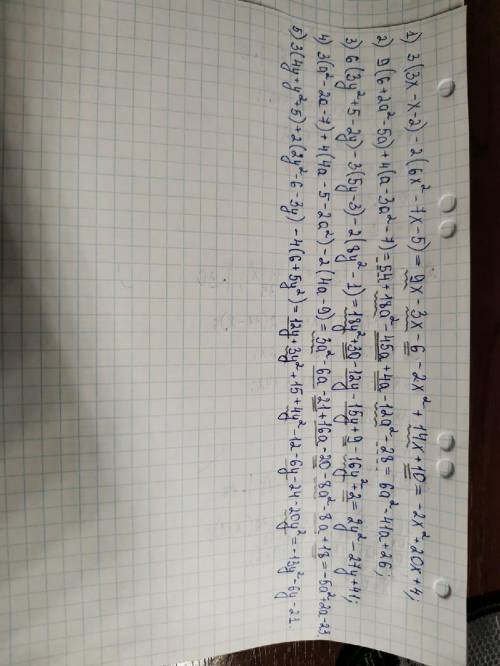 1) 3(3x-x-2)-2(6x²-7x-5)=9x-3x-6-2x²+14x+10=-2x²+20x+4;
2) 9(6+2a²-5a)+4(a-3a²-7)=54+18a²-45a+4a-12a²-28=6a²-41a+26;
3) 6(3y²+5-2y)-3(5y-3)-2(8y²-1)=18y²+30-12y-15y+9-16y²+2=2y²-27y+41;
4) 3(a²-2a-7)+4(4a-5-2a²)-2(4a-9)=3a²-6a-21+16a-20-8a²-8a+18=-5a²+2a-23
5) 3(4y+y²-5)+2(2y²-6-3y)-4(6+5y²)=12y+3y²+15+4y²-12-6y-24-20y²=-13y²-6y-21